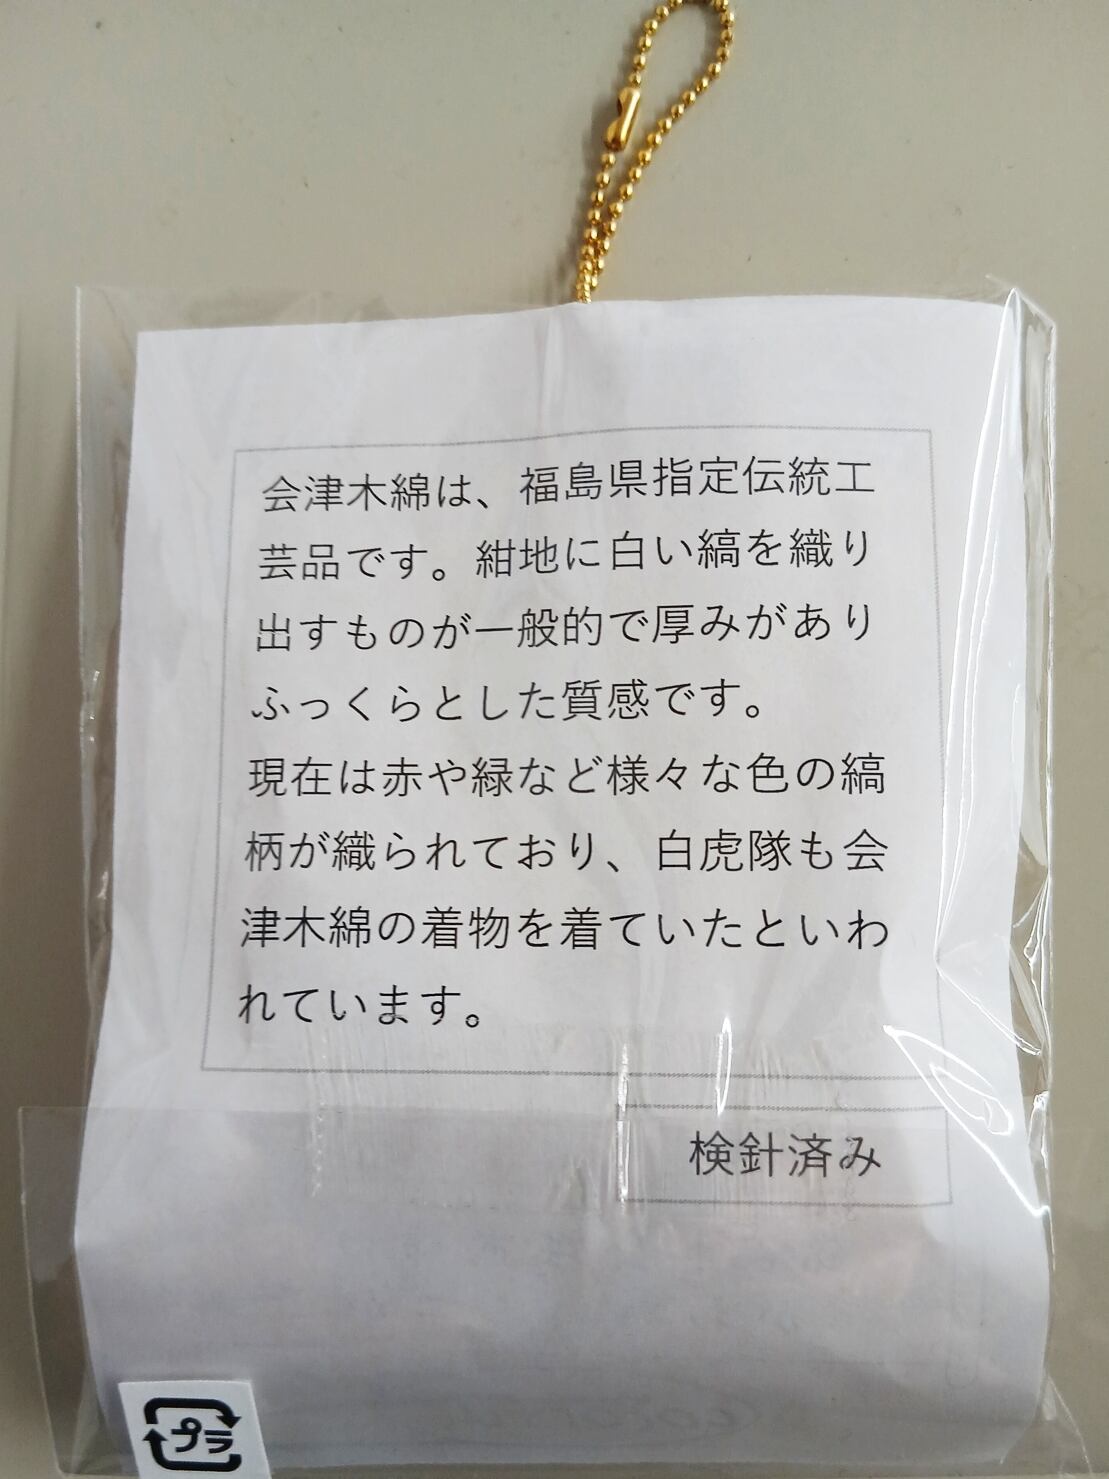 会津木綿は、福島県指定伝統工
芸品です。紺地に白い縞を織り
出すものが一般的で厚みがあり
ふっくらとした質感です。
現在は赤や緑など様々な色の縞
柄が織られており、白虎隊も会
津木綿の着物を着ていたといわ
れています。
検針済み
プラ